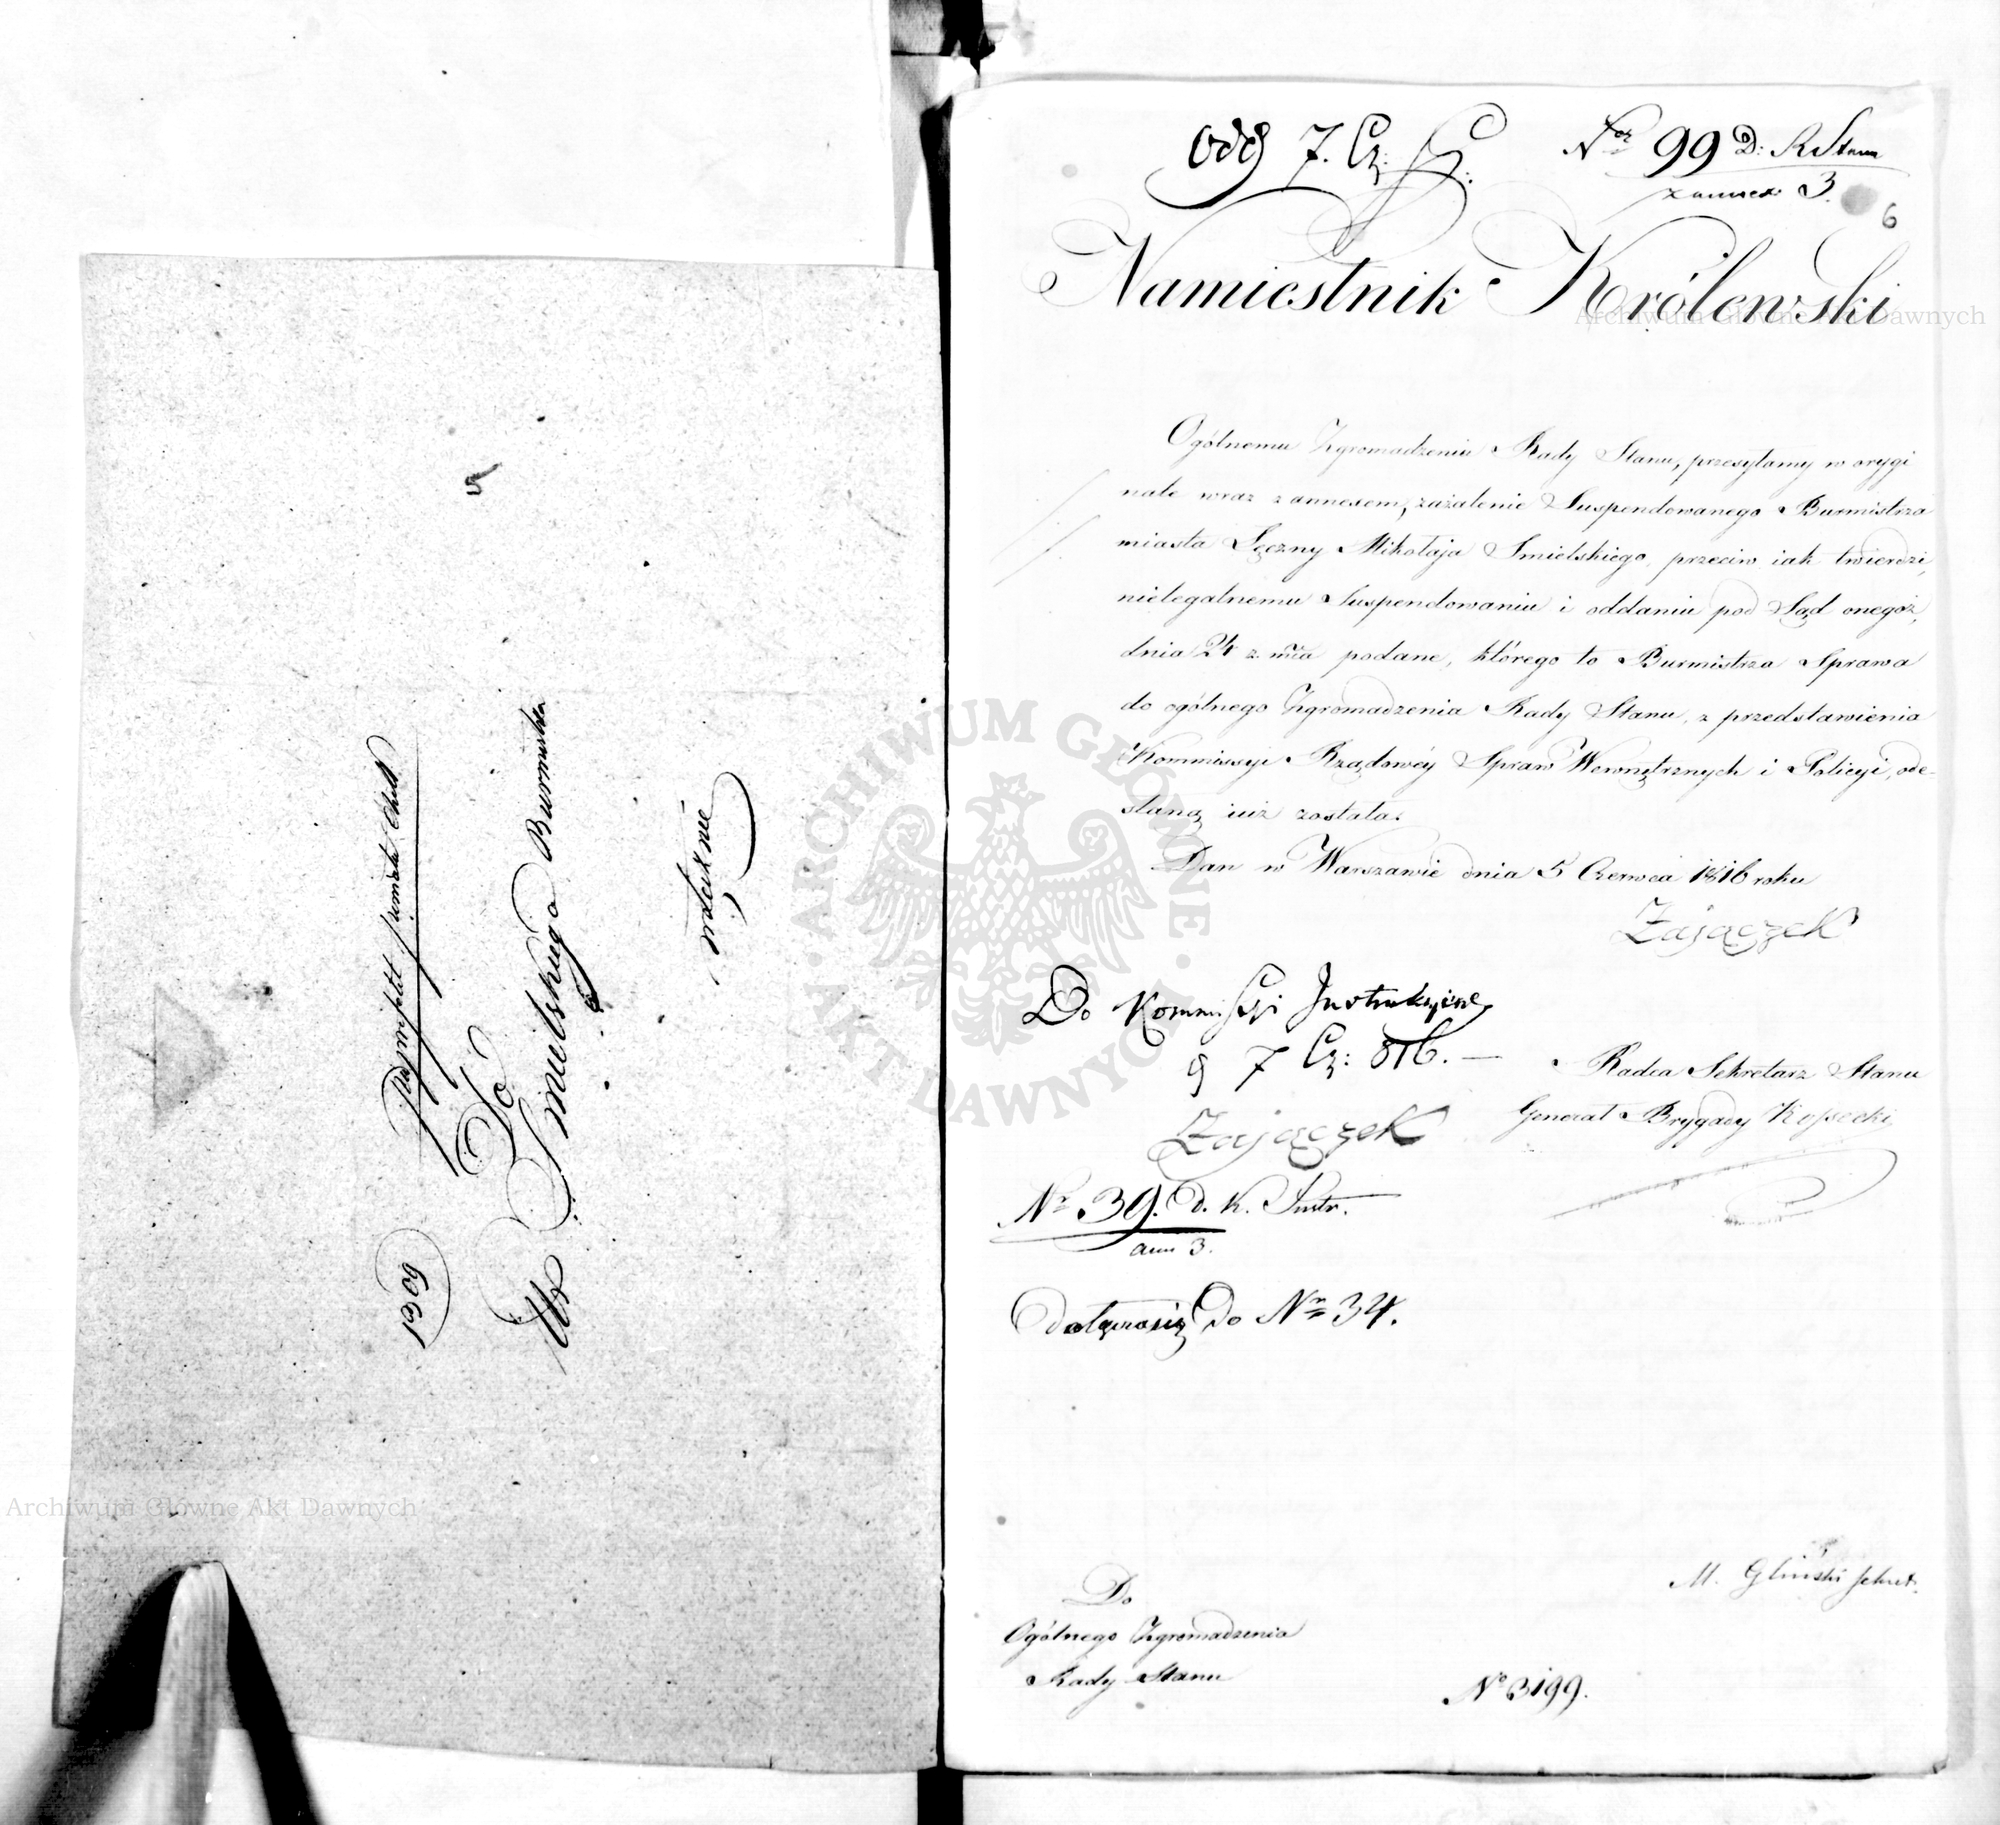 5
Podprefekt powiatu Chełm
1309
Do
Wo Smielskiego Burmistrza
w Łęcznie
odd 7. Cz:
Nro 99 D: R Stanu
z annex: 3.
6
Namiestnik Królewski
Ogólnemu Zgromadzeniu Rady Stanu, przesyłamy w orygi
nale wraz z annexem, zażalenie Suspendowanego Burmistrza
miasta Łęczny Mikołaja Smielskiego, przeciw iak twierdzi,
nielegalnemu Suspendowaniu i oddaniu pod Sąd onegoż,
dnia 24 z. mca podane, którego to Burmistrza Sprawa
do ogólnego Zgromadzenia Rady Stanu, z przedstawienia
Kommissyi Rządowéy Spraw Wewnętrznych i Policyi, ode-
słaną iuż została.
Dan w Warszawie dnia 5 Czerwca 1816 roku
Zajączek
Do Kommissyi Instrukcyine
d 7 Cz: 816. —
Zajączek
Radca Sekretarz Stanu
Generał Brygady Kossecki
Nr 39. D. K. Instr.
ann 3.
Dołącza się do Nr 34.
M. Gliński sekret.
Do
Ogólnego Zgromadzenia
Rady Stanu
No 3199.
Archiwum Główne Akt Dawnych
Archiwum Główne Akt Dawnych
ARCHIWUM GŁÓWNE AKT DAWNYCH